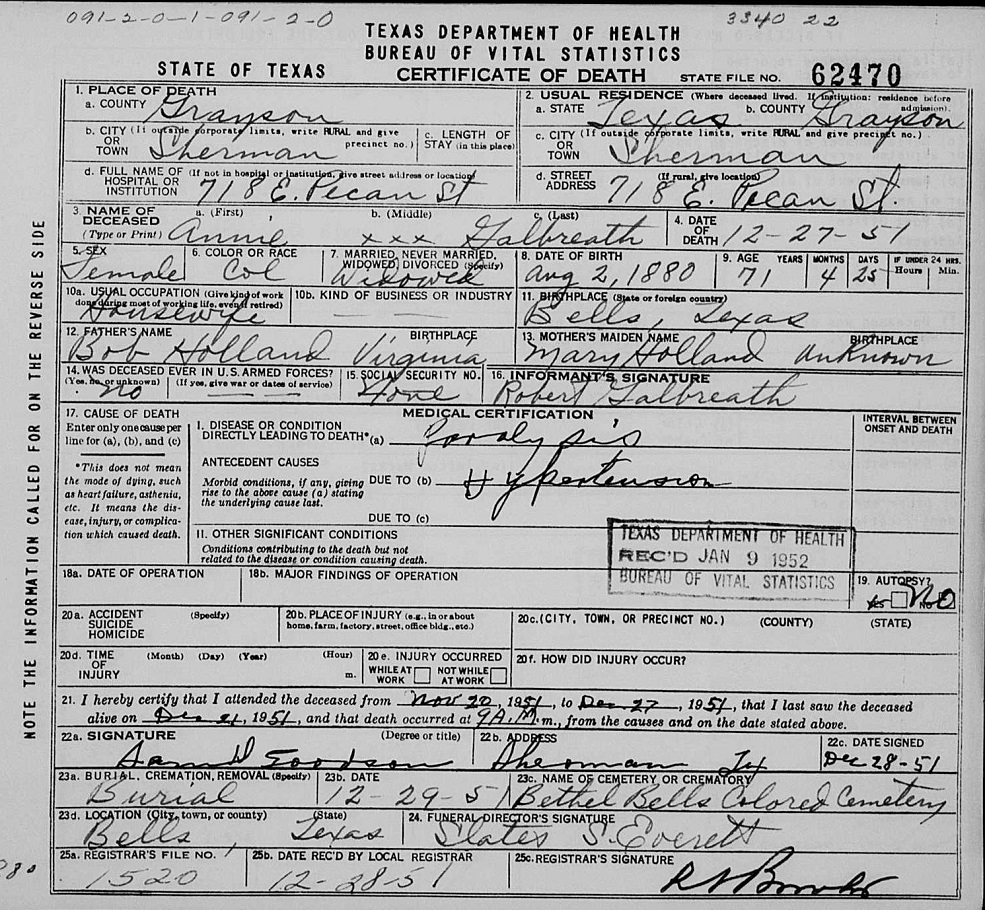 091-2-0-1-091-2-0
3340 22
TEXAS DEPARTMENT OF HEALTH
BUREAU OF VITAL STATISTICS
STATE OF TEXAS CERTIFICATE OF DEATH STATE FILE NO. 62470
NOTE THE INFORMATION CALLED FOR ON THE REVERSE SIDE
1. PLACE OF DEATH
a. COUNTY Grayson
2. USUAL RESIDENCE (Where deceased lived. If institution: residence before admission).
a. STATE Texas b. COUNTY Grayson
b. CITY (If outside corporate limits, write RURAL and give precinct no.) OR TOWN Sherman
c. LENGTH OF STAY (in this place)
c. CITY (If outside corporate limits, write RURAL and give precinct no.) OR TOWN Sherman
d. FULL NAME OF HOSPITAL OR INSTITUTION (If not in hospital or institution, give street address or location) 718 E. Pecan St
d. STREET ADDRESS (If rural, give location) 718 E. Pecan St.
3. NAME OF DECEASED (Type or Print) a. (First) Annie b. (Middle) xxx c. (Last) Galbreath
4. DATE OF DEATH 12-27-51
5. SEX Female
6. COLOR OR RACE Col
7. MARRIED, NEVER MARRIED, WIDOWED, DIVORCED (Specify) Widowed
8. DATE OF BIRTH Aug 2, 1880
9. AGE YEARS 71 MONTHS 4 DAYS 25 IF UNDER 24 HRS. Hours Min.
10a. USUAL OCCUPATION (Give kind of work done during most of working life, even if retired) Housewife
10b. KIND OF BUSINESS OR INDUSTRY — —
11. BIRTHPLACE (State or foreign country) Bells, Texas
12. FATHER'S NAME Bob Holland BIRTHPLACE Virginia
13. MOTHER'S MAIDEN NAME Mary Holland BIRTHPLACE unknown
14. WAS DECEASED EVER IN U.S. ARMED FORCES? (Yes, no, or unknown) No (If yes, give war or dates of service) — —
15. SOCIAL SECURITY NO. None
16. INFORMANT'S SIGNATURE Robert Galbreath
MEDICAL CERTIFICATION
17. CAUSE OF DEATH
Enter only one cause per line for (a), (b), and (c)
*This does not mean the mode of dying, such as heart failure, asthenia, etc. It means the disease, injury, or complication which caused death.
I. DISEASE OR CONDITION DIRECTLY LEADING TO DEATH*(a) Paralysis
INTERVAL BETWEEN ONSET AND DEATH
ANTECEDENT CAUSES
Morbid conditions, if any, giving rise to the above cause (a) stating the underlying cause last.
DUE TO (b) Hypertension
DUE TO (c)
II. OTHER SIGNIFICANT CONDITIONS
Conditions contributing to the death but not related to the disease or condition causing death.
TEXAS DEPARTMENT OF HEALTH
REC'D JAN 9 1952
BUREAU OF VITAL STATISTICS
18a. DATE OF OPERATION
18b. MAJOR FINDINGS OF OPERATION
19. AUTOPSY? YES NO No
20a. ACCIDENT SUICIDE HOMICIDE (Specify)
20b. PLACE OF INJURY (e.g., in or about home, farm, factory, street, office bldg., etc.)
20c. (CITY, TOWN, OR PRECINCT NO.) (COUNTY) (STATE)
20d. TIME OF INJURY (Month) (Day) (Year) (Hour) m.
20e. INJURY OCCURRED WHILE AT WORK NOT WHILE AT WORK
20f. HOW DID INJURY OCCUR?
21. I hereby certify that I attended the deceased from Nov 20, 1951, to Dec 27, 1951, that I last saw the deceased
alive on Dec 21, 1951, and that death occurred at 9 A.M. m., from the causes and on the date stated above.
22a. SIGNATURE (Degree or title) Sam D Goodson
22b. ADDRESS Sherman Tx
22c. DATE SIGNED Dec 28-51
23a. BURIAL, CREMATION, REMOVAL (Specify) Burial
23b. DATE 12-29-51
23c. NAME OF CEMETERY OR CREMATORY Bethel Bells Colored Cemetery
23d. LOCATION (City, town, or county) (State) Bells, Texas
24. FUNERAL DIRECTOR'S SIGNATURE Slates S. Everett
25a. REGISTRAR'S FILE NO. 1520
25b. DATE REC'D BY LOCAL REGISTRAR 12-28-51
25c. REGISTRAR'S SIGNATURE